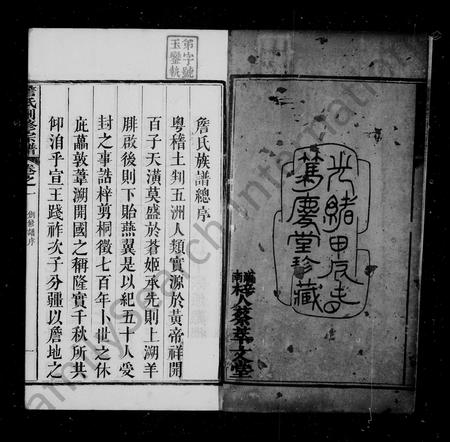 光緒甲辰年
篤慶堂珍藏
第字號
玉鑾執
詹氏族譜總序
粵稽土判五洲人類實源於黃帝祥開
百子天潢莫盛於蒼姬承先則上溯羊
腓啟後則下貽燕翼是以紀五十人受
封之事誥梓剪桐徵七百年卜世之休
庇藟敦葦溯開國之稱隆實千秋所共
仰洎乎宣王踐祚次子分疆以詹地之
詹氏創修宗譜 卷之一 創修譜序 一
familysearch International